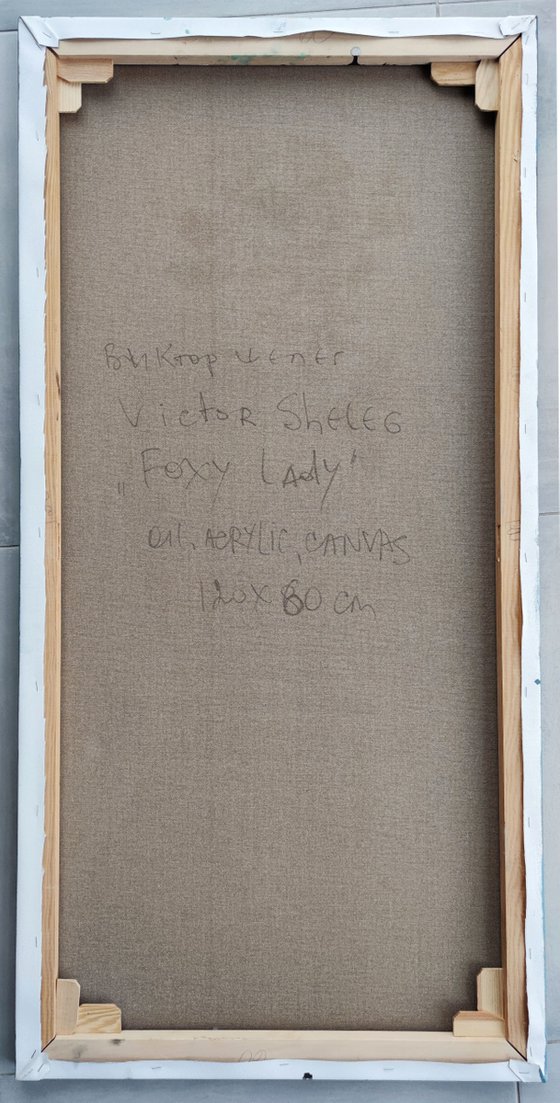 Виктор Шелег
Victor Sheleg
„Foxy Lady"
Oil, ACRYLIC, CANVAS
120x60 cm